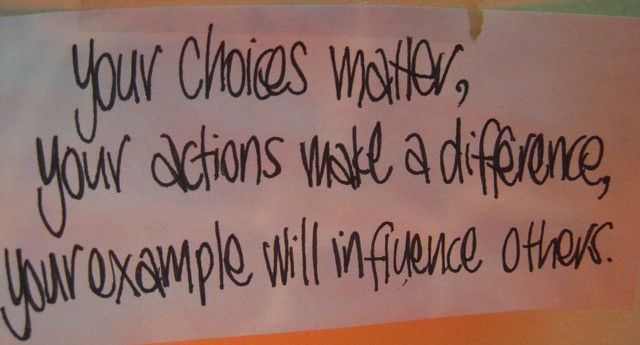 your choices matter,
your actions make a difference,
your example will influence others.